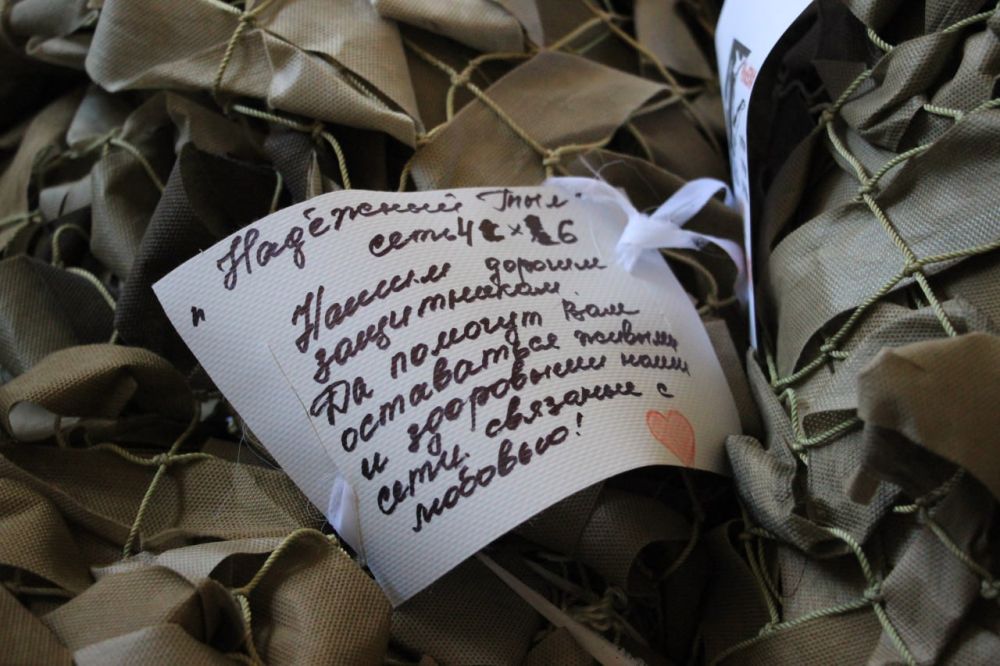 Надёжный Тыл
сеть 4 х 6
Нашим дорогим
защитникам.
Да помогут Вам
оставаться живыми
и здоровыми наши
сети, связаные с
любовью!